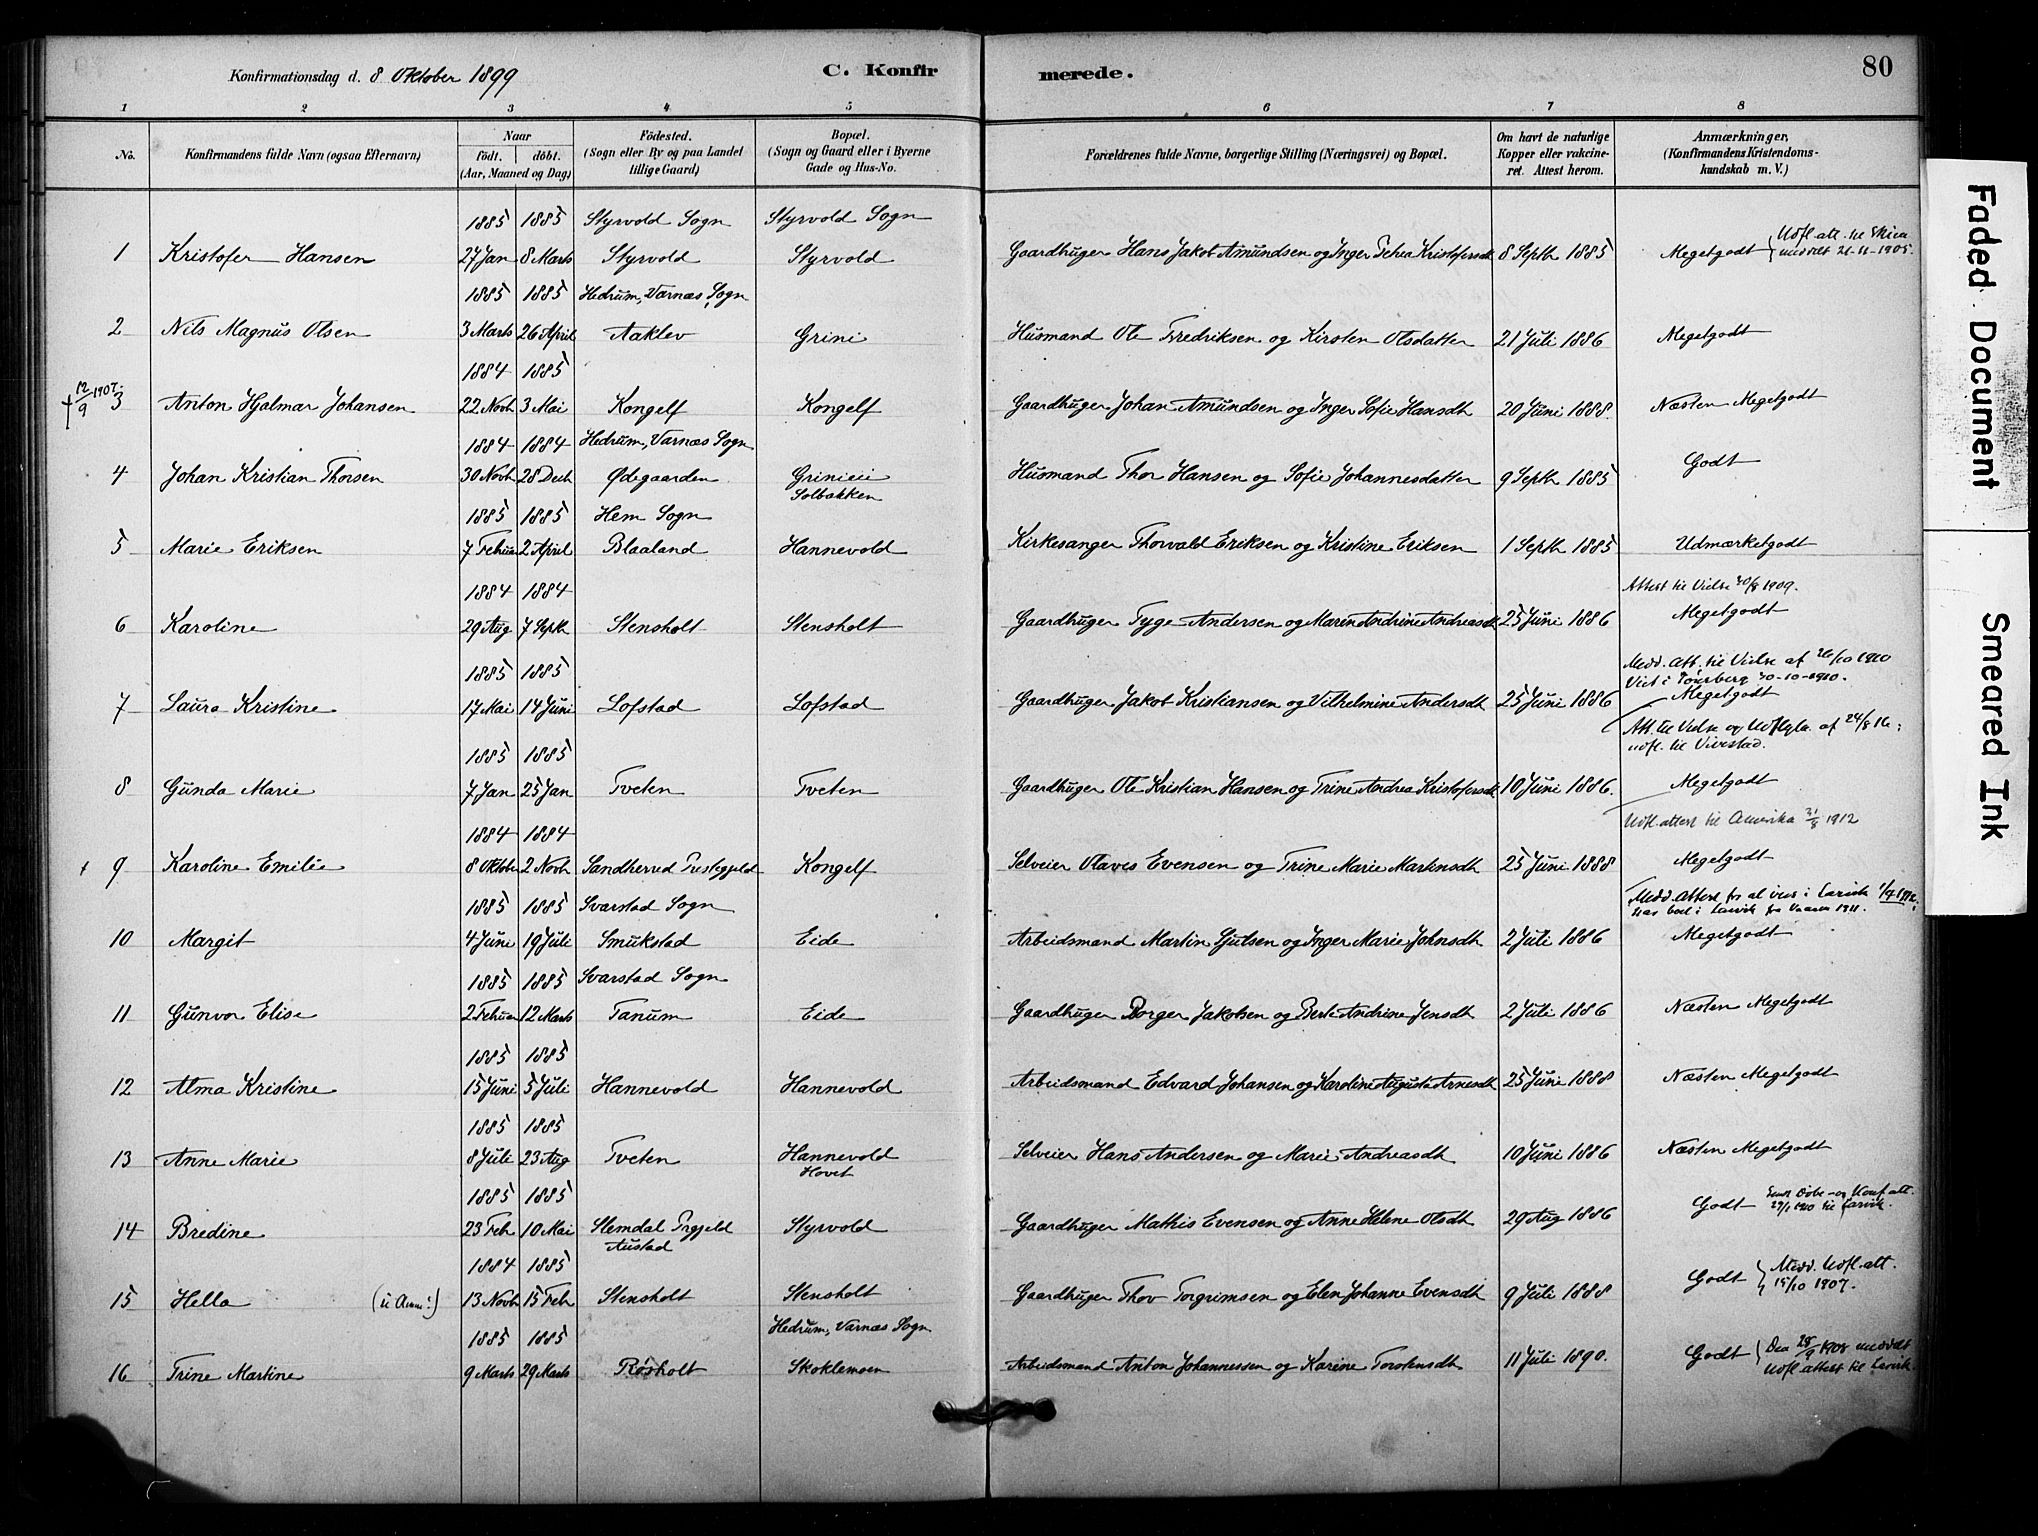 Konfirmationsdag d. 8 Oktober 1899
C. Konfirmerede.
80
1 2 3 4 5 6 7 8
No.
Konfirmandens fulde Navn (ogsaa Efternavn)
Naar
födt. döbt.
(Aar, Maaned og Dag)
Födested.
(Sogn eller By og paa Landet tillige Gaard)
Bopæl.
(Sogn og Gaard eller i Byerne Gade og Hus-No.
Forældrenes fulde Navne, borgerlige Stilling (Næringsvei) og Bopæl.
Om havt de naturlige Kopper eller vakcineret. Attest herom.
Anmærkninger,
(Konfirmandens Kristendomskundskab m. V.)
1885 1885 Styrvold Sogn Styrvold Sogn
1 Kristofer Hansen 27 Jan 8 Marts Styrvold Styrvold Gaardbruger Hans Jakob Amundsen og Inger Thea Kristofersdt 8 Septb 1885 Megetgodt Udfl. att. til Skien meddelt 21-11-1905.
1885 1885 Hedrum, Varnæs Sogn
2 Nils Magnus Olsen 3 Marts 26 April Aaklev Grini Husmand Ole Fredriksen og Kirsten Olsdatter 21 Juli 1886 Megetgodt
1884 1885
† 12/9 1907. 3 Anton Hjalmar Johansen 22 Novb 3 Mai Kongelf Kongelf Gaardbruger Johan Amundsen og Inger Sofie Hansdt 20 Juni 1888. Næsten Megetgodt
1884 1884 Hedrum, Varnæs Sogn
4 Johan Kristian Thorsen 30 Novb 28 Decb Ødegaarden Grinieie Solbakken Husmand Thor Hansen og Sofie Johannesdatter 9 Septb 1885 Godt
1885 1885 Hem Sogn
5 Marie Eriksen 7 Februar 2 April Blaaland Hannevold Kirkesanger Thorvald Eriksen og Kristine Eriksen 1 Septb 1885 Udmærketgodt
1884 1884 Attest til Vielse 30/8 1909.
6 Karoline 29 Aug 7 Septb Stensholt Stensholt Gaardbruger Tyge Andersen og Maren Andrine Andreasdt 25 Juni 1886 Megetgodt
1885 1885 Medd. Att. til Vielse af 26/10 1910
Viet i Tønsberg 30-10-1910.
7 Laura Kristine 17 Mai 14 Juni Lofstad Lofstad Gaardbruger Jakob Kristiansen og Vilhelmine Andersdt 25 Juni 1886 Megetgodt
Att. til Vielse og Udflytn. af 24/8 16:
udfl. til Vivestad.
1885 1885
8 Gunda Marie 7 Jan 25 Jan Tveten Tveten Gaardbruger Ole Kristian Hansen og Trine Andrea Kristofersdt 10 Juni 1886. Megetgodt
1884 1884 Udfl. attest til Amerika 31/8 1912
† 9 Karoline Emilie 8 Oktober 2 Novb Sandherred Prestegjeld Kongelf Selveier Olaves Evensen og Trine Marie Martinsdt 25 Juni 1888 Megetgodt
1885 1885 Svarstad Sogn Medd. Attest for at vies i Larvik
har boet i Larvik fra Vaaren 1911.
10 Margit 4 Juni 19 Juli Smukstad Eide Arbeidsmand Martin Gjulsen og Inger Marie Johnsdt 2 Juli 1886 Megetgodt
1885 1885 Svarstad Sogn
11 Gunvor Elise 2 Februar 12 Marts Tanum Eide Gaardbruger Borger Jakobsen og Berte Andrine Jensdt 2 Juli 1886 Næsten Megetgodt
1885 1885
12 Alma Kristine 15 Juni 5 Juli Hannevold Hannevold Arbeidsmand Edvard Johansen og Karoline Augusta Arnesdt 25 Juni 1888 Næsten Megetgodt
1885 1885
13 Anne Marie 8 Juli 23 Aug Tveten Hannevold Hovet Selveier Hans Andersen og Marie Andreasdt 10 Juni 1886 Næsten Megetgodt
1885 1885
14 Bredine 23 Feb 10 Mai Slemdal Prgjeld Austad Styrvold Gaardbruger Mathis Evensen og Anne Helene Olsdt 29 Aug 1886 Godt Sendt Döbe- og Konf. att. 29/1 1910 til Larvik.
1884 1885
15 Hella 13 Novb 15 Feb Stensholt Stensholt Gaardbruger Thov Torgrimsen og Elen Johanne Evensdt 9 Juli 1888 Godt Medd. Udfl. att. 15/10 1907.
1885 1885 Hedrum, Varnæs Sogn
16 Trine Martine 9 Marts 29 Marts Røsholt Skoklemoen Arbeidsmand Anton Johannessen og Karine Torstensdt 11 Juli 1890. Godt Den 28/9 1908 meddelt Udfl. attest til Larvik.
Faded Document
Smeared Ink